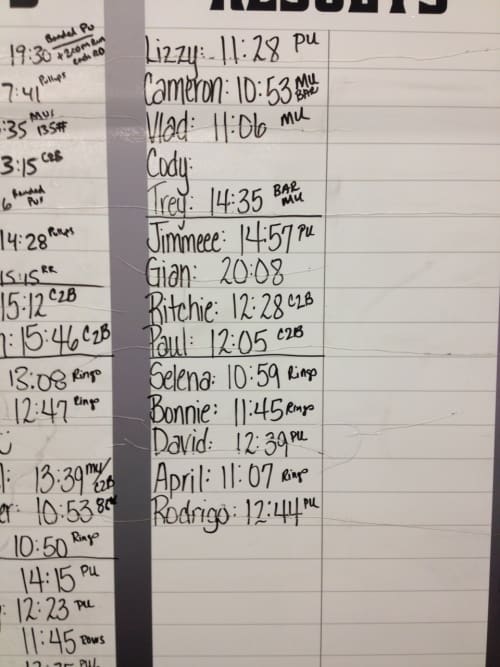 RESULTS
19:30 Banded PU
+200m Run
each RD
7:41 Pullups
:35 MUs
135#
3:15 C2B
6 Banded
PUs
14:28 Pullups
15:15 RR
15:12 C2B
n: 15:46 C2B
13:08 Ring
12:47 Ring
l: 13:39 MU/
C2B
er: 10:53
10:50 Ring
14:15 PU
12:23 PU
11:45 Rows
Lizzy: 11:28 PU
Cameron: 10:53 MU
BAR
Vlad: 11:06 MU
Cody:
Trey: 14:35 BAR
MU
Jimmeee: 14:57 PU
Gian: 20:08
Ritchie: 12:28 C2B
Paul: 12:05 C2B
Selena: 10:59 Ring
Bonnie: 11:45 Ring
David: 12:39 PU
April: 11:07 Ring
Rodrigo: 12:44 PU